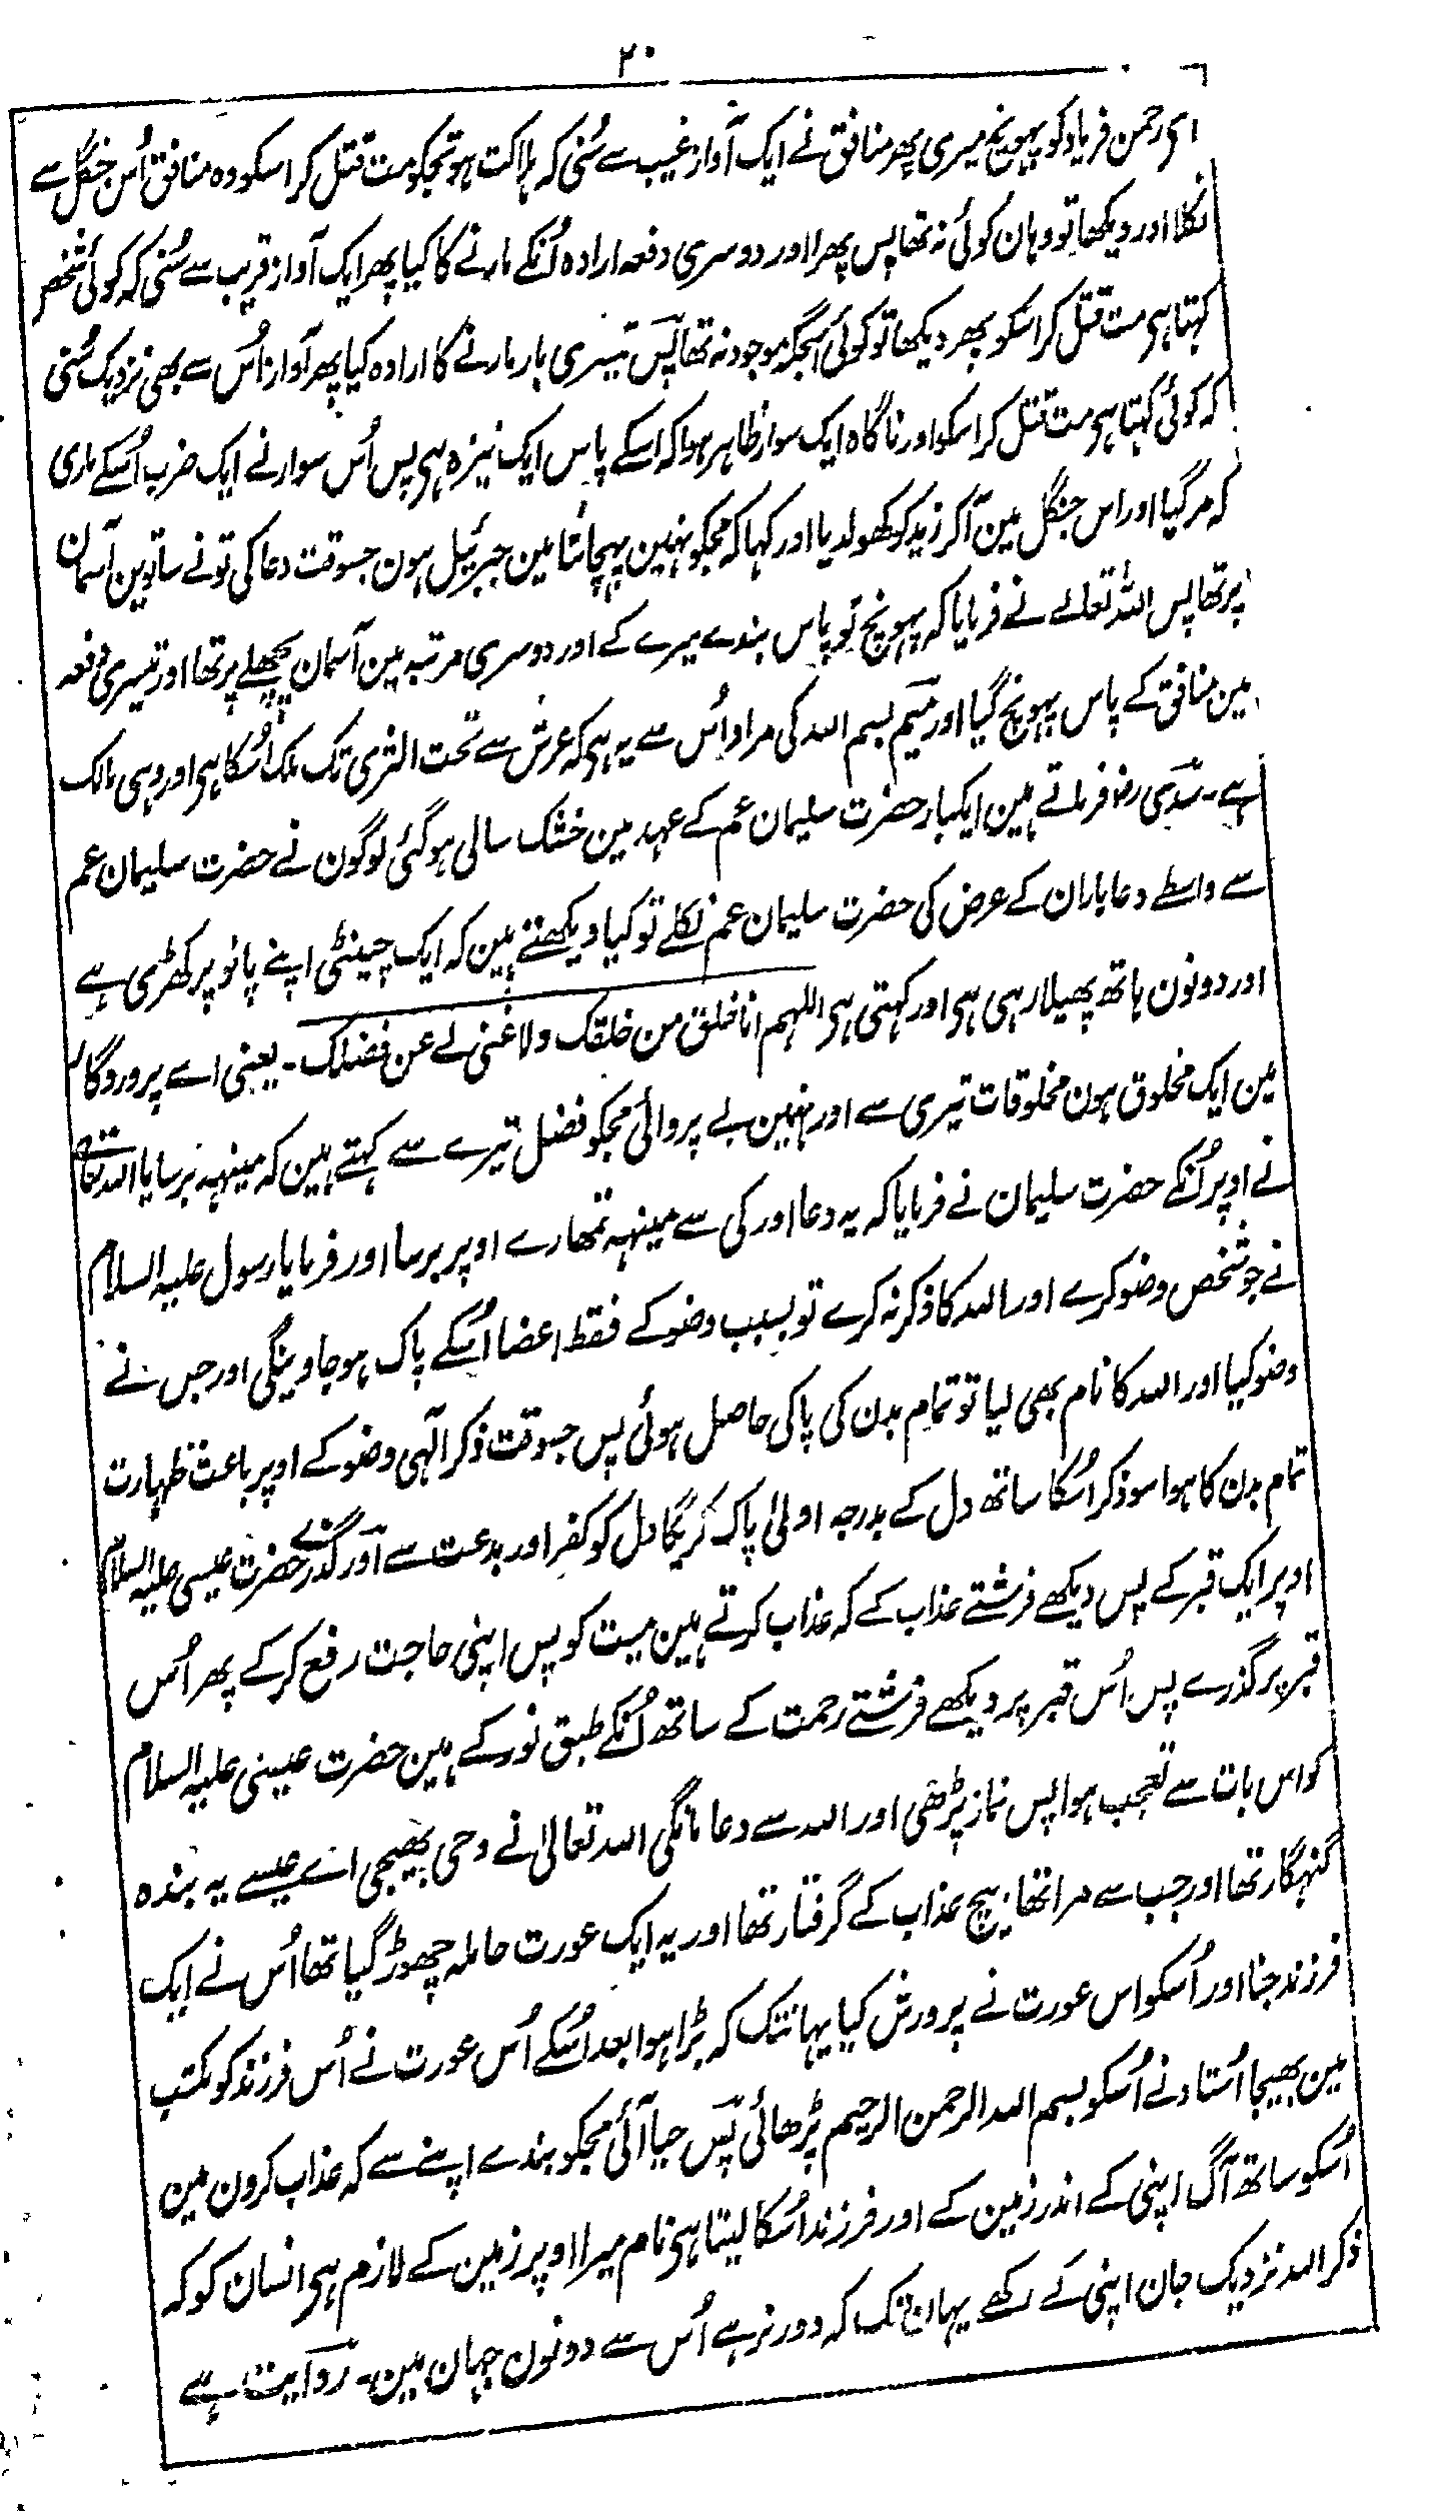 ۲۰
ای رحمن فریاد کو پہونچ میری پھر منافق نے ایک آواز غیب سے سُنی کہ ہلاکت ہو تجکو مت قتل کر اسکو وہ منافق اُس جنگل سے
نکلا اور دیکھا تو وہان کوئی نہ تھا پس پھرا اور دوسری دفعہ ارادہ اُنکے مارنے کا کیا پھر ایک آواز قریب سے سُنی کہ کوئی شخص
کہتا ہی مت قتل کر اسکو پھر دیکھا تو کوئی اُسجگہ موجود نہ تھا پس تیسری بار مارنے کا ارادہ کیا پھر آواز اُس سے بھی نزدیک سُنی
کہ کوئی کہتا ہی مت قتل کر اسکو اور ناگاہ ایک سوار ظاہر ہوا کہ اسکے پاس ایک نیزہ ہی پس اُس سوار نے ایک ضرب اُسکے ماری
کہ مرگیا اور اس جنگل مین آکر زید کو کھولدیا اور کہا کہ مجکو نہین پہچانتا مین جبرئیل ہون جسوقت دعا کی تونے ساتوین آسمان
پر تھا پس اللہ تعالے نے فرمایا کہ پہونچ تو پاس بندے میرے کے اور دوسری مرتبہ مین آسمان پچھلے پر تھا اور تیسری دفعہ
مین منافق کے پاس پہونچ گیا اور میم بسم اللہ کی مراد اُس سے یہ ہی کہ عرش سے تحت الثری تک ملک اُسکا ہی اور وہی مالک
ہے۔ سدی رض فرماتے ہین ایکبار حضرت سلیمان عم کے عہد مین خشک سالی ہوگئی لوگون نے حضرت سلیمان عم
سے واسطے دعا باران کے عرض کی حضرت سلیمان عم نکلے تو کیا دیکھتے ہین کہ ایک چینٹی اپنے پانو پر کھڑی ہے
اور دونون ہاتھ پھیلا رہی ہی اور کہتی ہی اللہم انا خلق من خلقک ولا غنی لے عن فضلک۔ یعنی اے پروردگار
مین ایک مخلوق ہون مخلوقات تیری سے اور نہین بے پروائی مجکو فضل تیرے سے کہتے ہین کہ مینہہ برسایا اللہ تعالے
نے اوپر اُنکے حضرت سلیمان نے فرمایا کہ یہ دعا اور کی سے مینہہ تمھارے اوپر برسا اور فرمایا رسول علیہ السلام
نے جو شخص وضو کرے اور اللہ کا ذکر نہ کرے تو بسبب وضو کے فقط اعضا اُسکے پاک ہوجاوینگی اور جس نے
وضو کیا اور اللہ کا نام بھی لیا تو تمام بدن کی پاکی حاصل ہوئی پس جسوقت ذکر آلہی وضو کے اوپر باعث طہارت
تمام بدن کا ہوا سو ذکر اُسکا ساتھ دل کے بدرجہ اولیٰ پاک کریگا دل کو کفر اور بدعت سے اور گذرے حضرت عیسی علیہ السلام
اوپر ایک قبر کے پس دیکھے فرشتے عذاب کے کہ عذاب کرتے ہین میت کو پس اپنی حاجت رفع کرکے پھر اُس
قبر پر گذرے پس اُس قبر پر دیکھے فرشتے رحمت کے ساتھ اُنکے طبق نور کے ہین حضرت عیسی علیہ السلام
کو اس بات سے تعجب ہوا پس نماز پڑھی اور اللہ سے دعا مانگی اللہ تعالیٰ نے وحی بھیجی اے عیسے یہ بندہ
گنہگار تھا اور جب سے مرا تھا بیچ عذاب کے گرفتار تھا اور یہ ایک عورت حاملہ چھوڑ گیا تھا اُس نے ایک
فرزند جنا اور اُسکو اس عورت نے پرورش کیا یہانتک کہ بڑا ہوا بعد اُسکے اُس عورت نے اُس فرزند کو مکتب
مین بھیجا اُستاد نے اُسکو بسم اللہ الرحمن الرحیم پڑھائی پس حیا آئی مجکو بندے اپنے سے کہ عذاب کرون مین
اُسکو ساتھ آگ اپنی کے اندر زمین کے اور فرزند اُسکا لیتا ہی نام میرا اوپر زمین کے لازم ہی انسان کو کہ
ذکر اللہ نزدیک جان اپنی کے رکھے یہان تک کہ دور نرہے اُس سے دونون جہان مین۔ روایت ہے